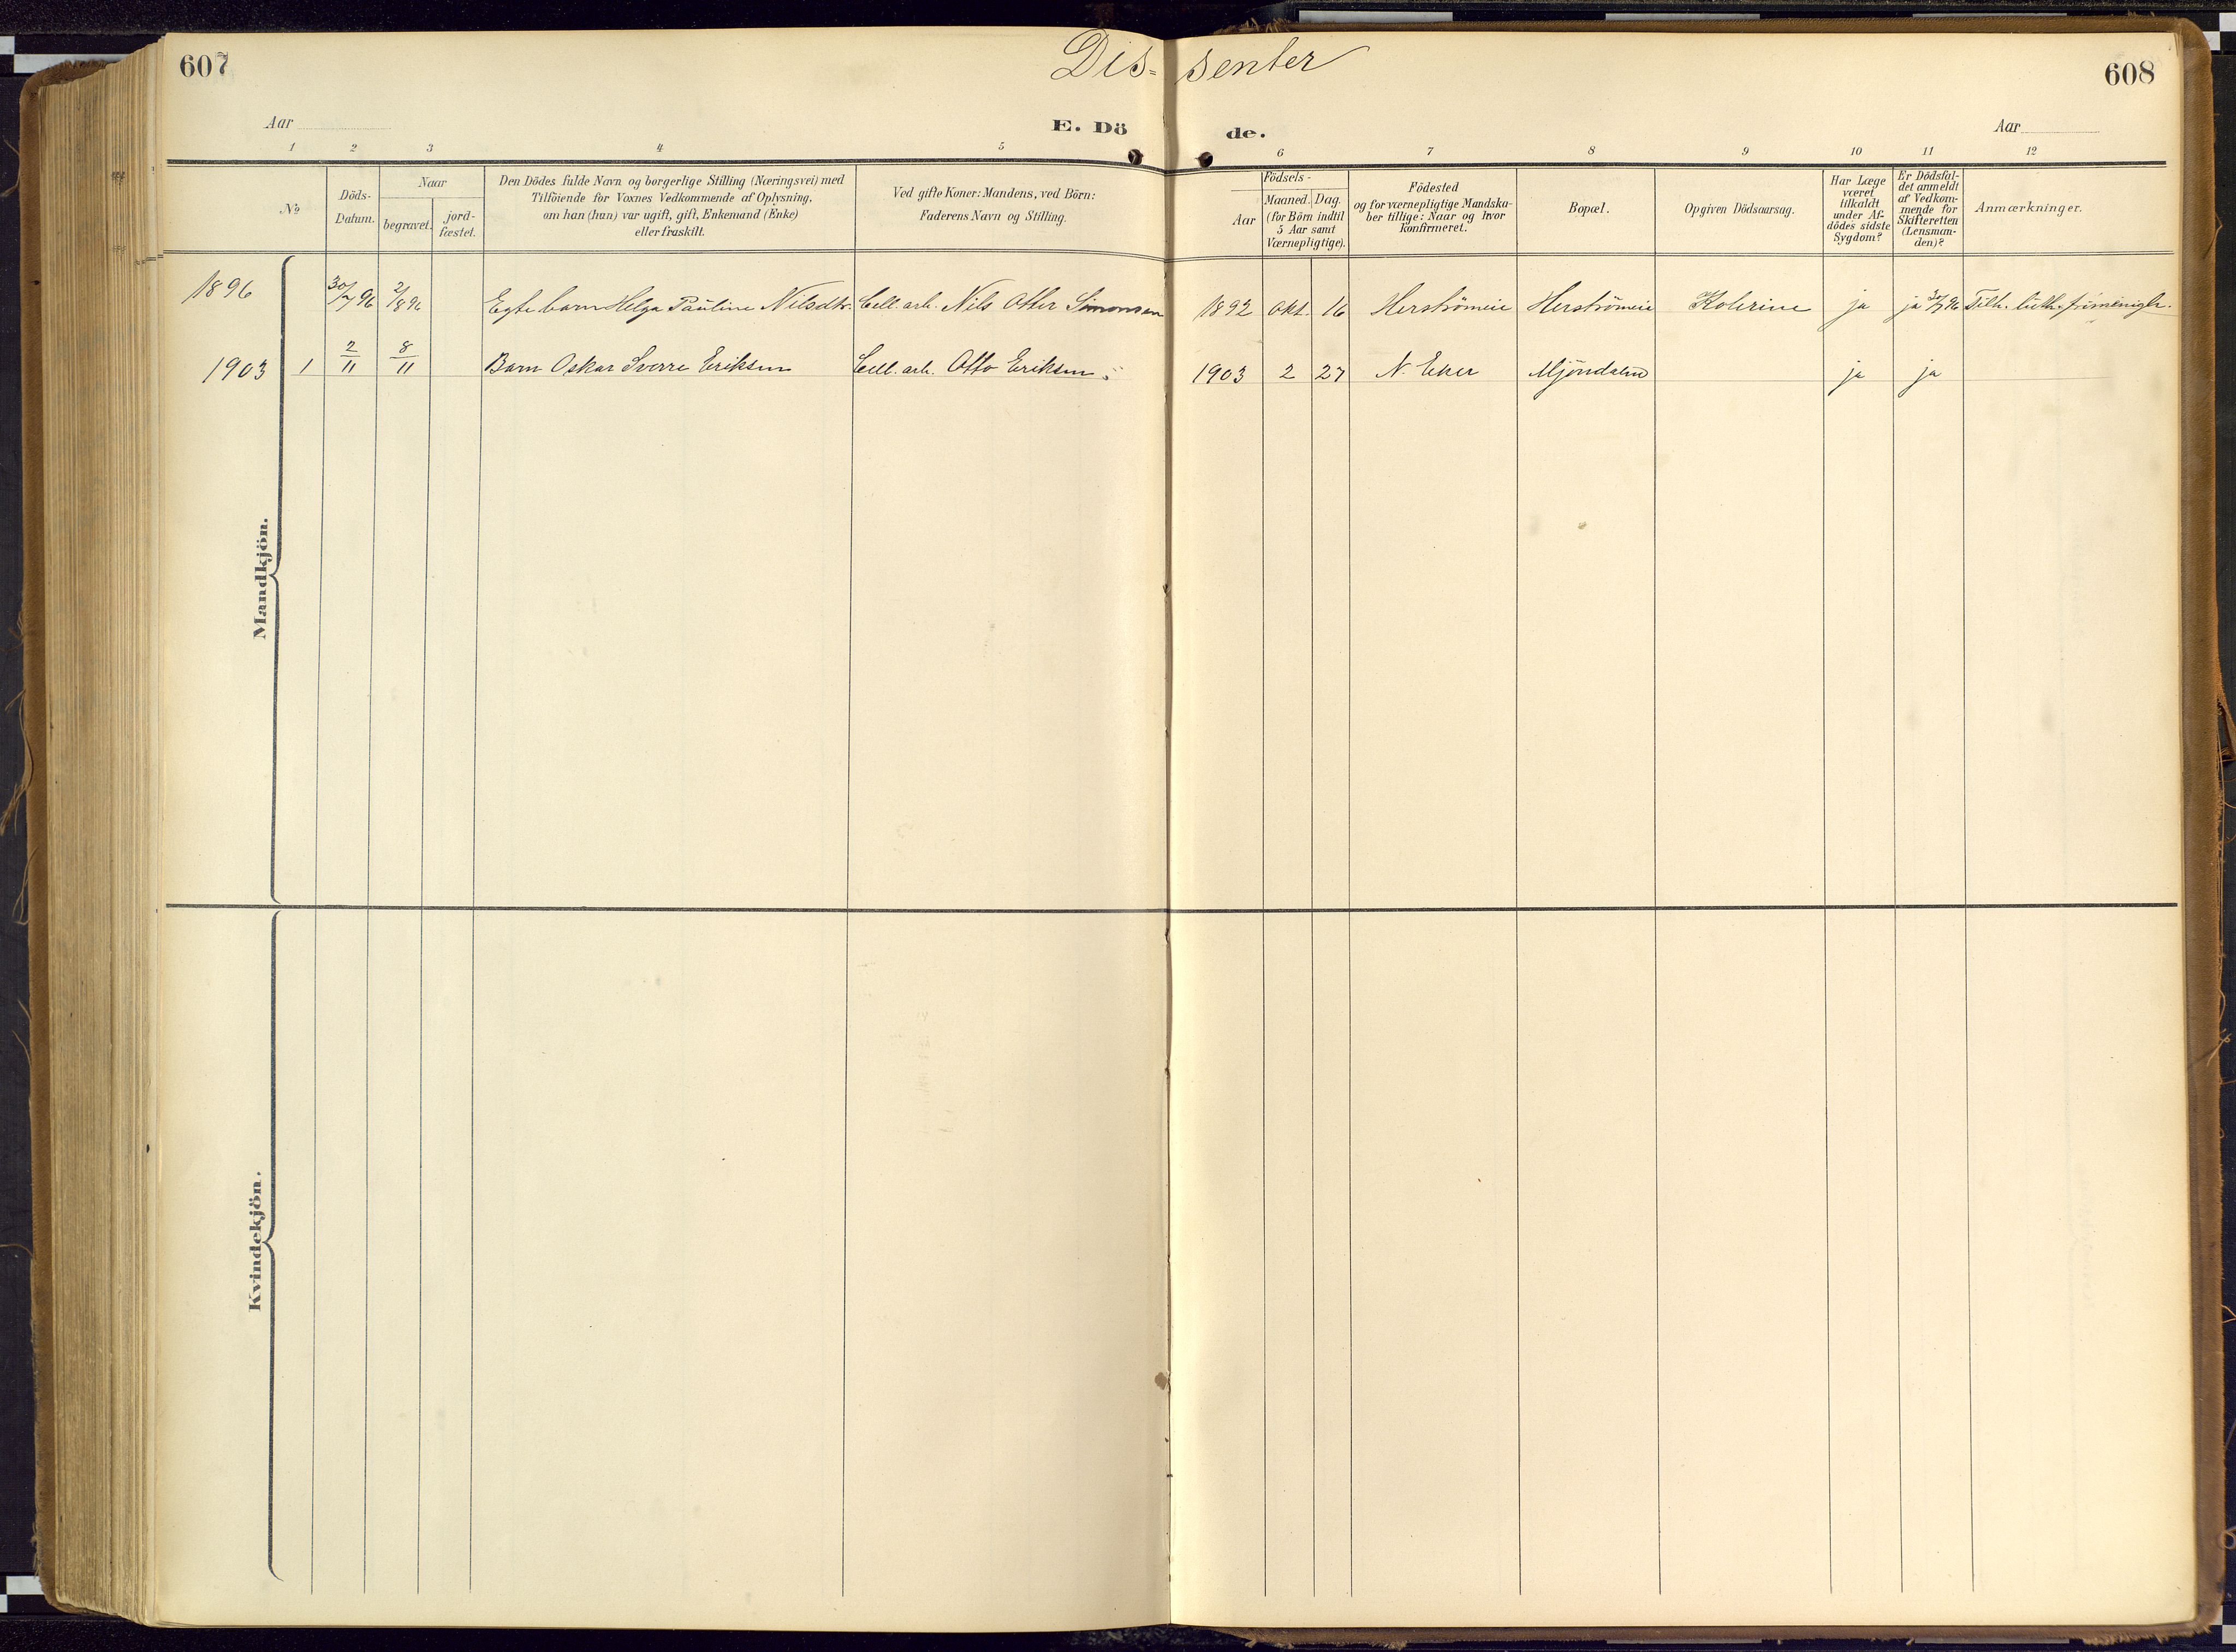 607
Dis- senter
608
Aar
E. Dö de.
Aar
1 2 3 4 5 6 7 8 9 10 11 12
No
Döds-
Datum.
Naar
begravet.
jord-
fæstet.
Den Dödes fulde Navn og borgerlige Stilling (Næringsvei) med
Tilföiende for Voxnes Vedkommende af Oplysning,
om han (hun) var ugift, gift, Enkemand (Enke)
eller fraskilt.
Ved gifte Koner: Mandens, ved Börn:
Faderens Navn og Stilling.
Födsels-
Aar
Maaned. Dag.
(for Börn indtil
5 Aar samt
Værnepligtige).
Födested
og for værnepligtige Mandska-
ber tillige: Naar og hvor
konfirmeret.
Bopæl.
Opgiven Dödsaarsag.
Har Læge
været
tilkaldt
under Af-
dödes sidste
Sygdom?
Er Dödsfal-
det anmeldt
af Vedkom-
mende for
Skifteretten
(Lensman-
den)?
Anmærkninger.
1896 30/7 96 2/8 96 Egte barn Helga Pauline Nilsdtr. Cell. arb. Nils Otter Simonsen 1892 Okt. 16 Herströmeie Herströmeie Kolerine ja ja 30/7 96 Tilh. luth. frimenigh.
1903 1 2/11 8/11 Barn Oskar Sverre Eriksen Cell. arb. Otto Eriksen 1903 2 27 N. Eker Mjöndalen ja ja
Mandkjön.
Kvindekjön.